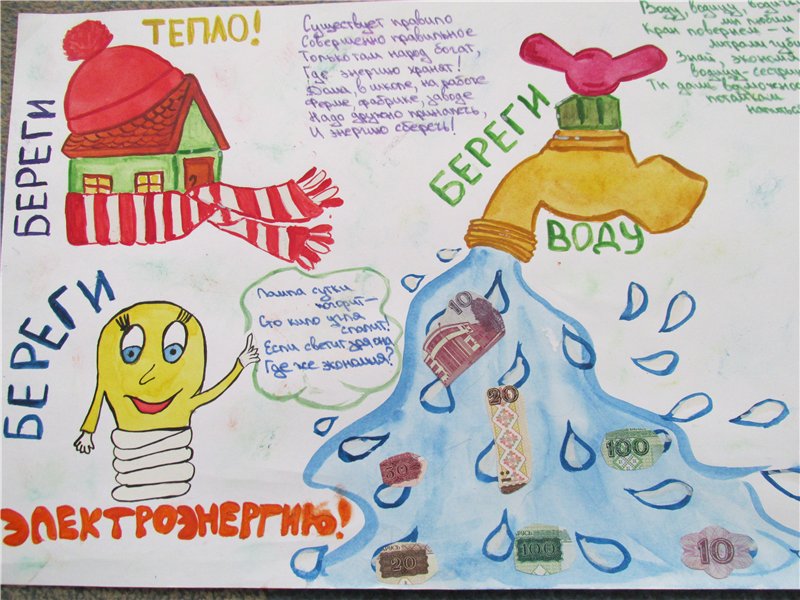 БЕРЕГИ
ТЕПЛО!
Существует правило
Совершенно правильное
Только там народ богат,
Где энергию хранят!
Дома, в школе, на работе
Ферме, фабрике, заводе
Надо дружно приналечь,
И энергию сберечь!
БЕРЕГИ
ВОДУ
Воду, водицу,
мы любим
Кран повернём – и
литрами
Знай, экономя
водицу-сестрицу
Ты даешь возможность
потомкам
БЕРЕГИ
ЭЛЕКТРОЭНЕРГИЮ!
Лампа сутки
погорит –
Сто кило угля
спалит!
Если светит зря она
Где же экономия?
10
20
50
100
20
100
10